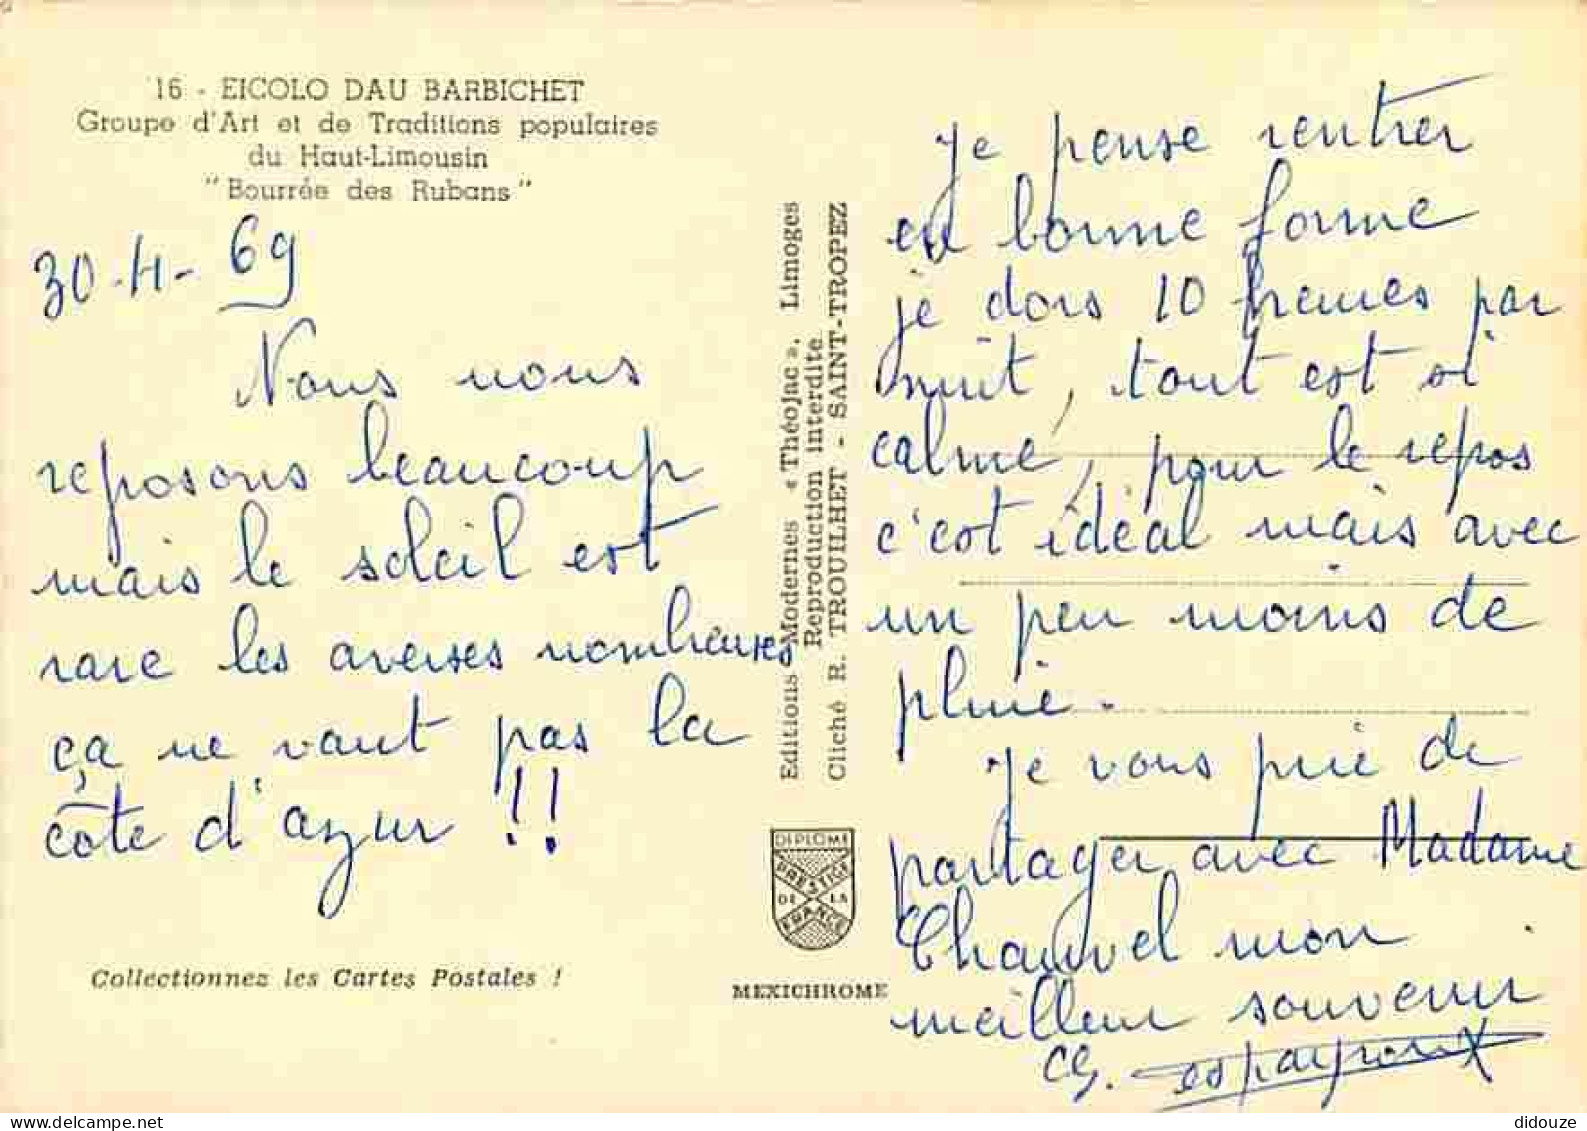 16 - EICOLO DAU BARBICHET
Groupe d'Art et de Traditions populaires
du Haut-Limousin
"Bourrée des Rubans"
30-4-69
Nous nous
reposons beaucoup
mais le soleil est
rare les averses nombreuses
ça ne vaut pas la
côte d'azur !!
Collectionnez les Cartes Postales !
Editions Modernes « Théojac », Limoges
Reproduction interdite
Cliché R. TROUILHET - SAINT-TROPEZ
DIPLOME
PRESTIGE
DE LA
FRANCE
MEXICHROME
Je pense rentrer
en bonne forme
je dors 10 heures par
nuit, tout est si
calme, pour le repos
c'est idéal mais avec
un peu moins de
pluie.
Je vous prie de
partager avec Madame
Chauvel mon
meilleur souvenir
didouze